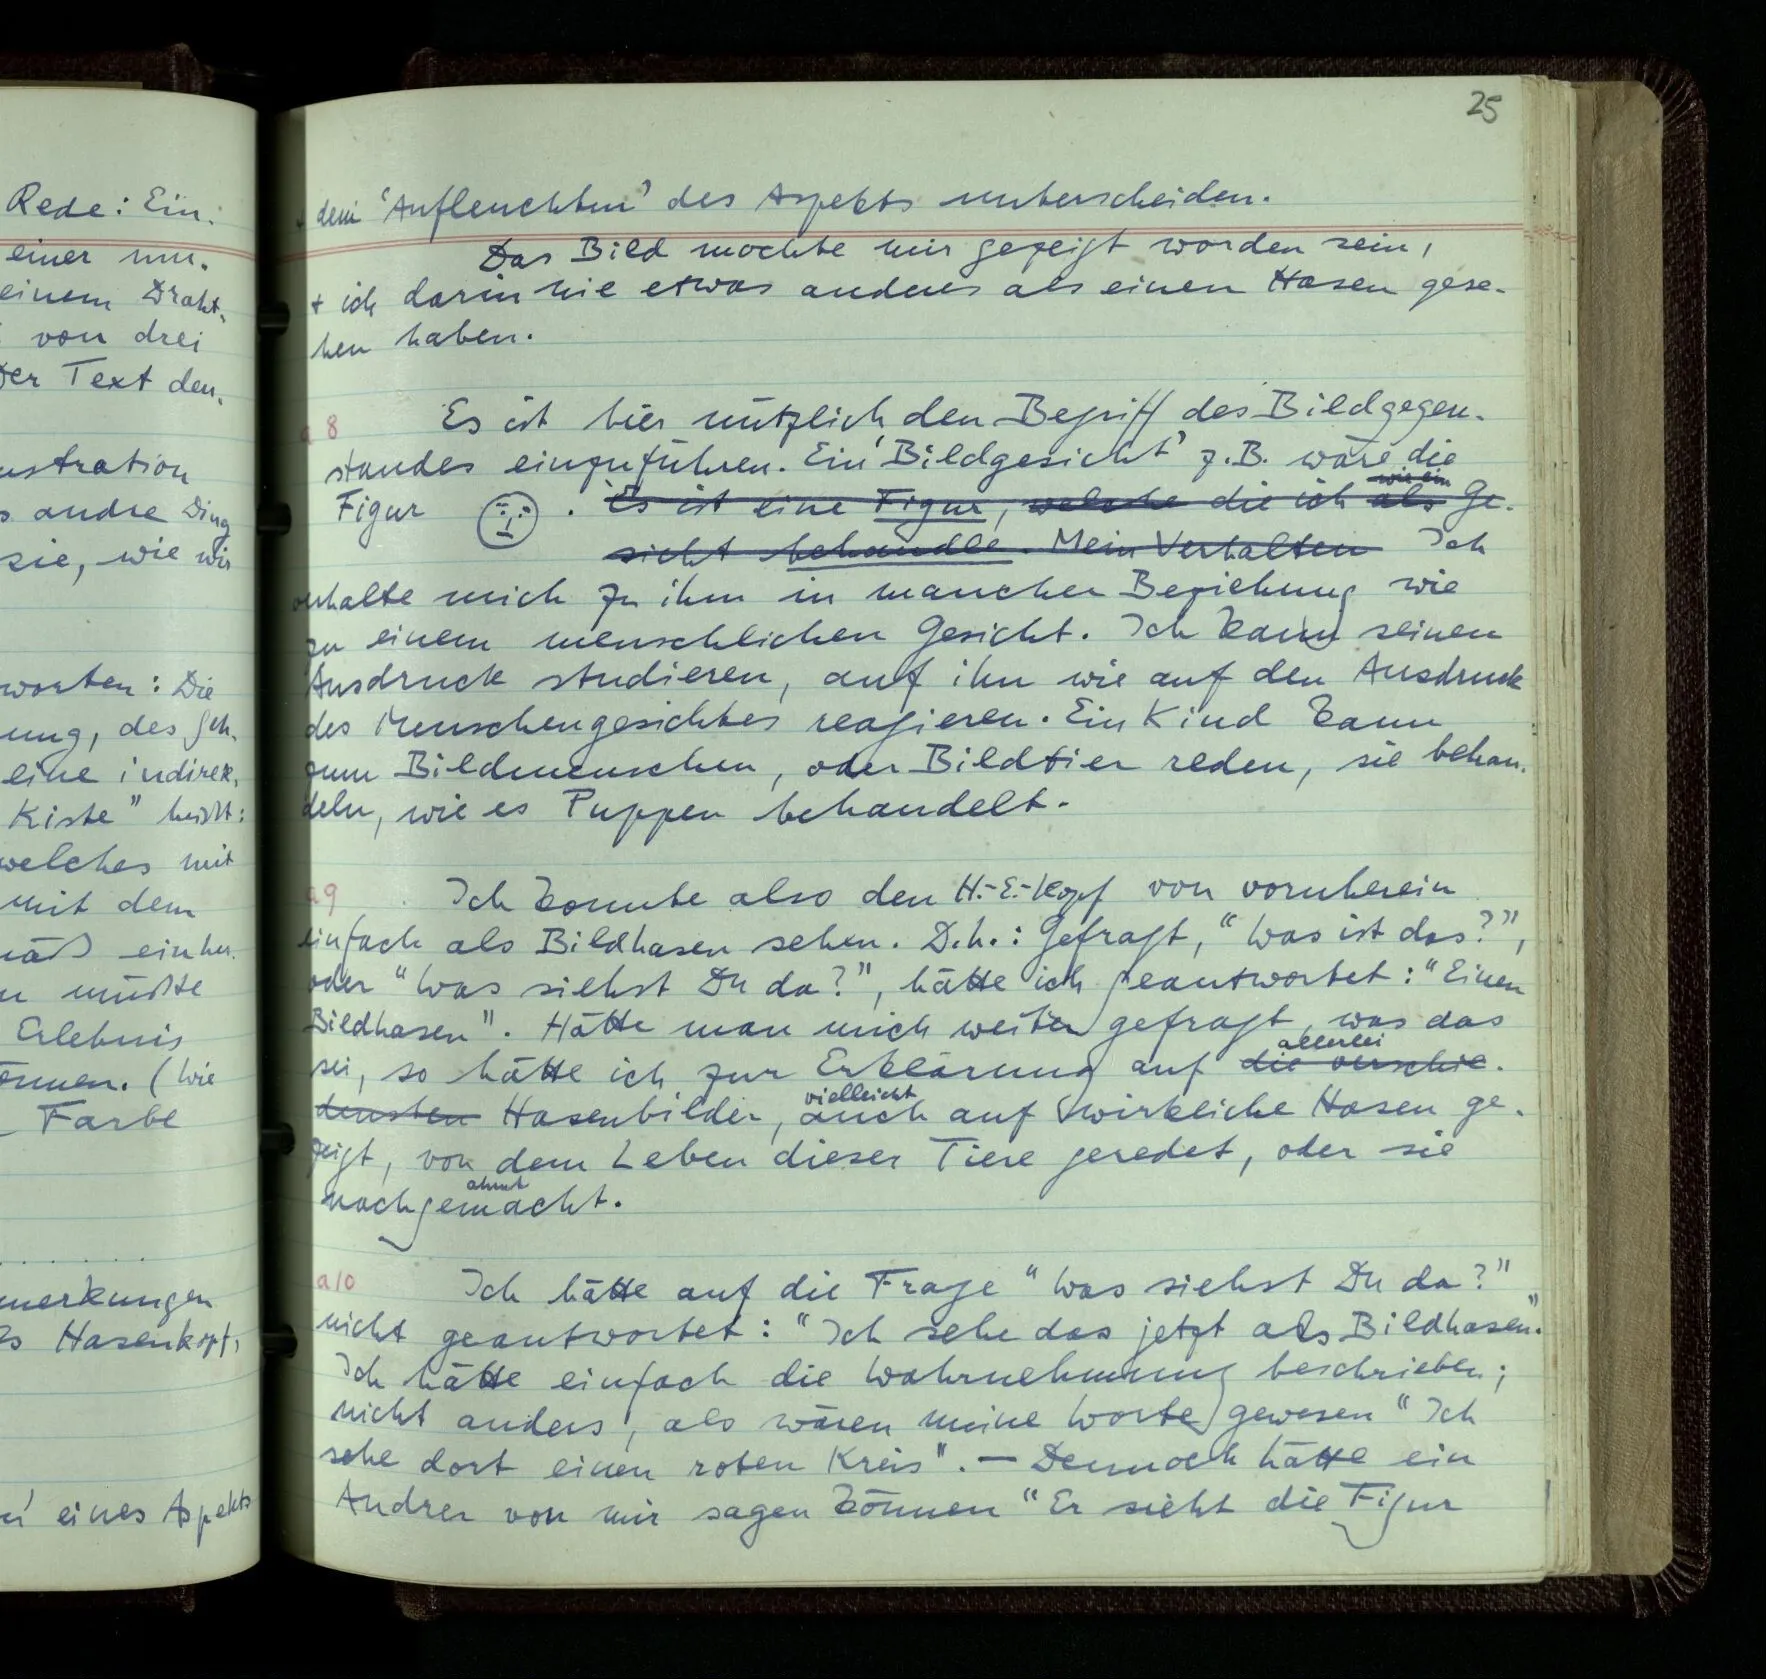 Rede: Ein-
einer um-
einem Draht-
von drei
Der Text deu-
ustration
andre Ding
sie, wie wir
worten: Die
ung, des Seh-
eine indirek-
Kiste" heißt:
welches mit
mit dem
einher-
müßte
Erlebnis
(Wie
Farbe
. . . . . . .
merkungen
Hasenkopf,
eines Aspekts
25
+ dem 'Aufleuchten' des Aspekts unterscheiden.
Das Bild mochte mir gezeigt worden sein,
+ ich darin nie etwas anderes als einen Hasen gese-
hen haben.
a8
Es ist hier nützlich den Begriff des Bildgegen-
standes einzuführen. Ein 'Bildgesicht' z.B. wäre die
wie ein
Figur . Es ist eine Figur, welche die ich als Ge-
sicht behandle. Mein Verhalten Ich
verhalte mich zu ihm in mancher Beziehung wie
zu einem menschlichen Gesicht. Ich kann seinen
Ausdruck studieren, auf ihn wie auf den Ausdruck
des Menschengesichtes reagieren. Ein Kind kann
zum Bildmenschen, oder Bildtier reden, sie behan-
deln, wie es Puppen behandelt.
a9
Ich konnte also den H.-E.-Kopf von vornherein
einfach als Bildhasen sehen. D.h.: Gefragt, "Was ist das?",
oder "Was siehst Du da?", hätte ich geantwortet: "Einen
Bildhasen". Hätte man mich weiter gefragt, was das
allerlei
sei, so hätte ich zur Erklärung auf die verschie-
vielleicht
densten Hasenbilder, auch auf wirkliche Hasen ge-
zeigt, von dem Leben dieser Tiere geredet, oder sie
ahmt
nachgemacht.
a10
Ich hätte auf die Frage "Was siehst Du da?"
nicht geantwortet: "Ich sehe das jetzt als Bildhasen."
Ich hätte einfach die Wahrnehmung beschrieben;
nicht anders, als wären meine Worte gewesen "Ich
sehe dort einen roten Kreis". — Dennoch hätte ein
Andrer von mir sagen können "Er sieht die Figur